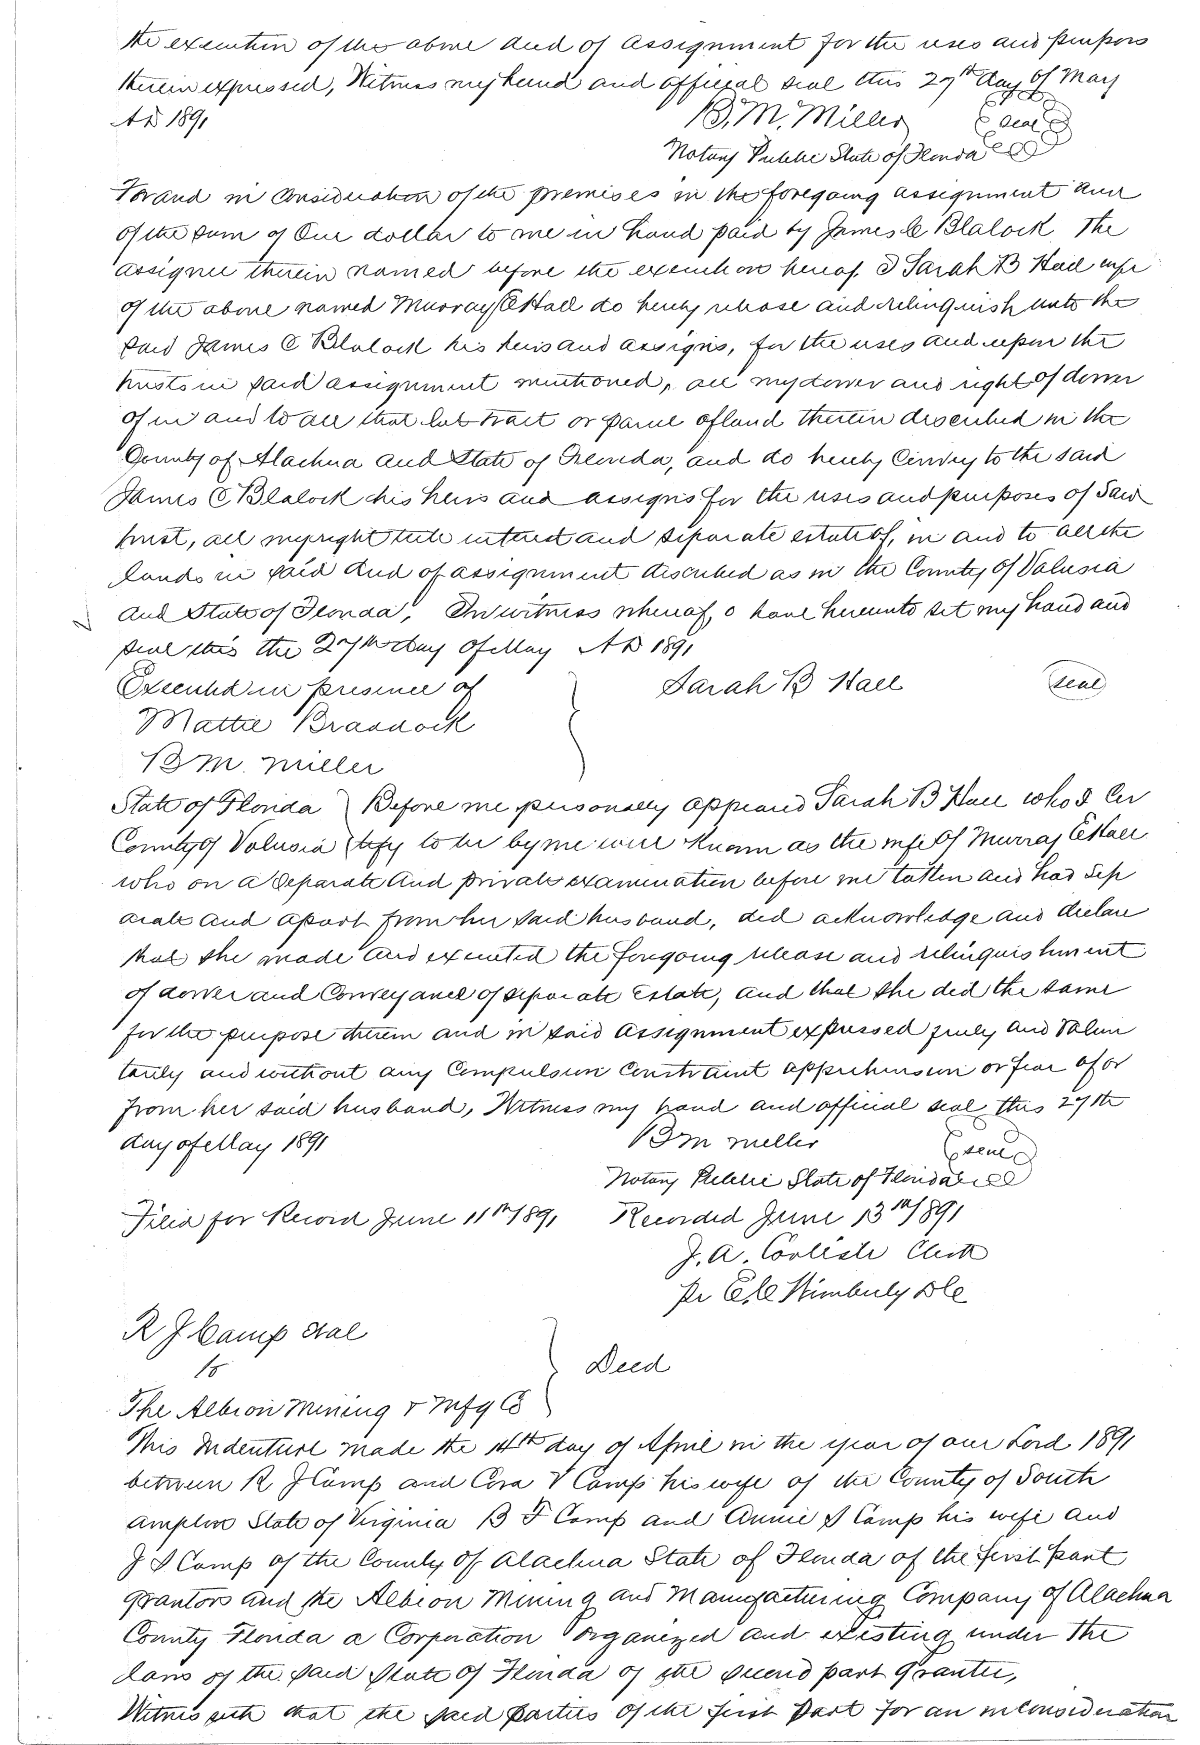 the execution of the above deed of assignment for the uses and purposes
therein expressed, Witness my hand and official seal this 27th day of May
A D 1891
B. M. Miller seal
Notary Public State of Florida
For and in consideration of the premises in the foregoing assignment and
of the sum of One dollar to me in hand paid by James C Blalock the
assignee therein named before the execution hereof, I Sarah B Hall wife
of the above named Murray E Hall do hereby release and relinquish unto the
said James C Blalock his heirs and assigns, for the uses and upon the
trusts in said assignment mentioned, all my dower and right of dower
of in and to all that lot tract or parcel of land therein described in the
County of Alachua and State of Florida, and do hereby Convey to the said
James C Blalock his heirs and assigns for the uses and purposes of said
trust, all my right title interest and separate estate of, in and to all the
lands in said deed of assignment described as in the County of Valusia
and State of Florida, In witness whereof, I have hereunto set my hand and
seal this the 27th day of May A D 1891
Executed in presence of Sarah B Hall seal
Mattie Braddock
B M. Miller
State of Florida Before me personally appeared Sarah B Hall who I Cer
County of Volusia tify to be by me well known as the wife of Murray E Hall
who on a separate and private examination before me taken and had sep
arate and apart from her said husband, did acknowledge and declare
that she made and executed the foregoing release and relinquishment
of dower and Conveyance of separate Estate, and that she did the same
for the purpose therein and in said assignment expressed freely and Volun
tarily and without any Compulsion Constraint apprehension or fear of or
from her said husband, Witness my hand and official seal this 27th
day of May 1891 B M Miller seal
Notary Public State of Florida
Filed for Record June 11th 1891 Recorded June 13th 1891
J. A. Carlisle Clerk
Pr E. C Wimberly D C
R J Camp et al
to Deed
The Albion Mining & Mfg Co
This Indenture made the 14th day of April in the year of our Lord 1891
between R J Camp and Cora V Camp his wife of the County of South
ampton State of Virginia B F Camp and Annie S Camp his wife and
J S Camp of the County of Alachua State of Florida of the first part
grantors and the Albion Mining and Manufacturing Company of Alachua
County Florida a Corporation organized and existing under the
laws of the said State of Florida of the second part grantee,
Witnesseth that the said parties of the first part for an in consideration